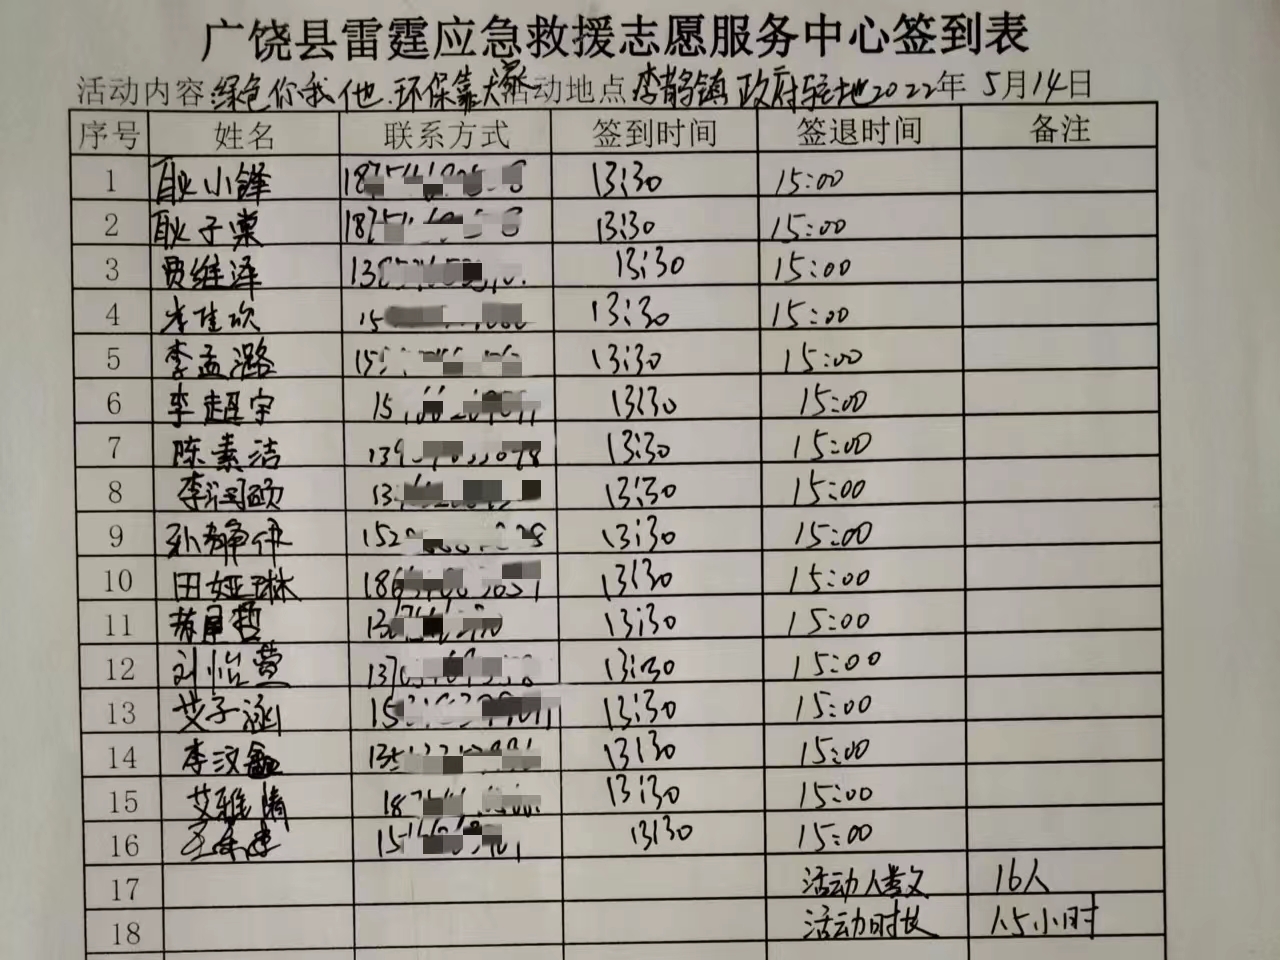 广饶县雷霆应急救援志愿服务中心签到表
活动内容 绿色你我他.环保靠大家 活动地点 李鹊镇政府驻地 2022年 5月14日
序号 姓名 联系方式 签到时间 签退时间 备注
1 耿小锋 13:30 15:00
2 耿子棠 13:30 15:00
3 贾维泽 13:30 15:00
4 李佳欣 13:30 15:00
5 李孟潞 13:30 15:00
6 李超宇 13:30 15:00
7 陈素洁 13:30 15:00
8 李润硕 13:30 15:00
9 孙静伊 13:30 15:00
10 田娅琳 13:30 15:00
11 13:30 15:00
12 刘怡萱 13:30 15:00
13 艾子涵 13:30 15:00
14 李汶鑫 13:30 15:00
15 艾雅倩 13:30 15:00
16 13:30 15:00
17 活动人数 16人
18 活动时长 1.5小时